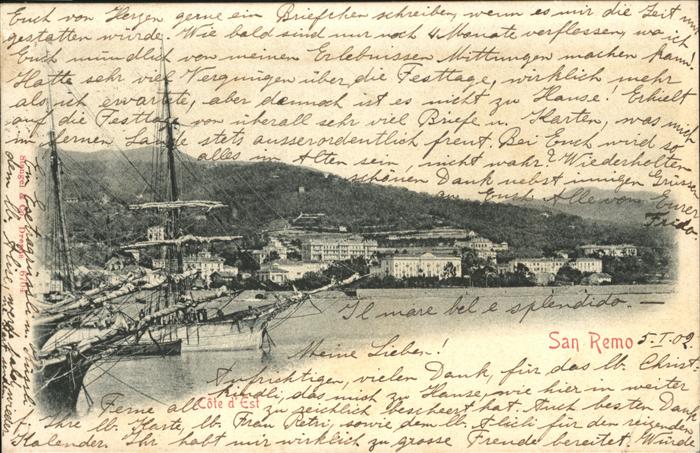 Euch von Herzen gerne ein Briefchen schreiben, wenn es mir die Zeit nur
gestatten würde. Wie bald sind nur noch 4 Monate verflossen, wo ich
Euch mündlich von meinen Erlebnissen Mitteilungen machen kann!
Hatte sehr viel Vergnügen über die Festtage, wirklich mehr
als ich erwartete, aber dennoch ist es nicht zu Hause! Erhielt
auf die Festtage von überall sehr viel Briefe u. Karten, was mich
im fernen Lande stets ausserordentlich freut. Bei Euch wird so
alles im Alten sein, nicht wahr? Wiederholten
schönen Dank nebst innigen Grüssen
an Euch Alle von Eurer
Frida
Il mare bel e splendido. —
San Remo 5. I. 02.
Meine Lieben!
Aufrichtigen, vielen Dank, für das lb. Christ-
kindli, das mich zu Hause wie hier in weiter
Ferne all zu reichlich beschert hat. Auch besten Dank
f. Ihre lb. Karte, lb. Frau Petri, sowie dem lb. für den reizenden
Kalender. Ihr habt mir wirklich zu grosse Freude bereitet. Würde
Côte d'Est
Stengel & Co., Dresden